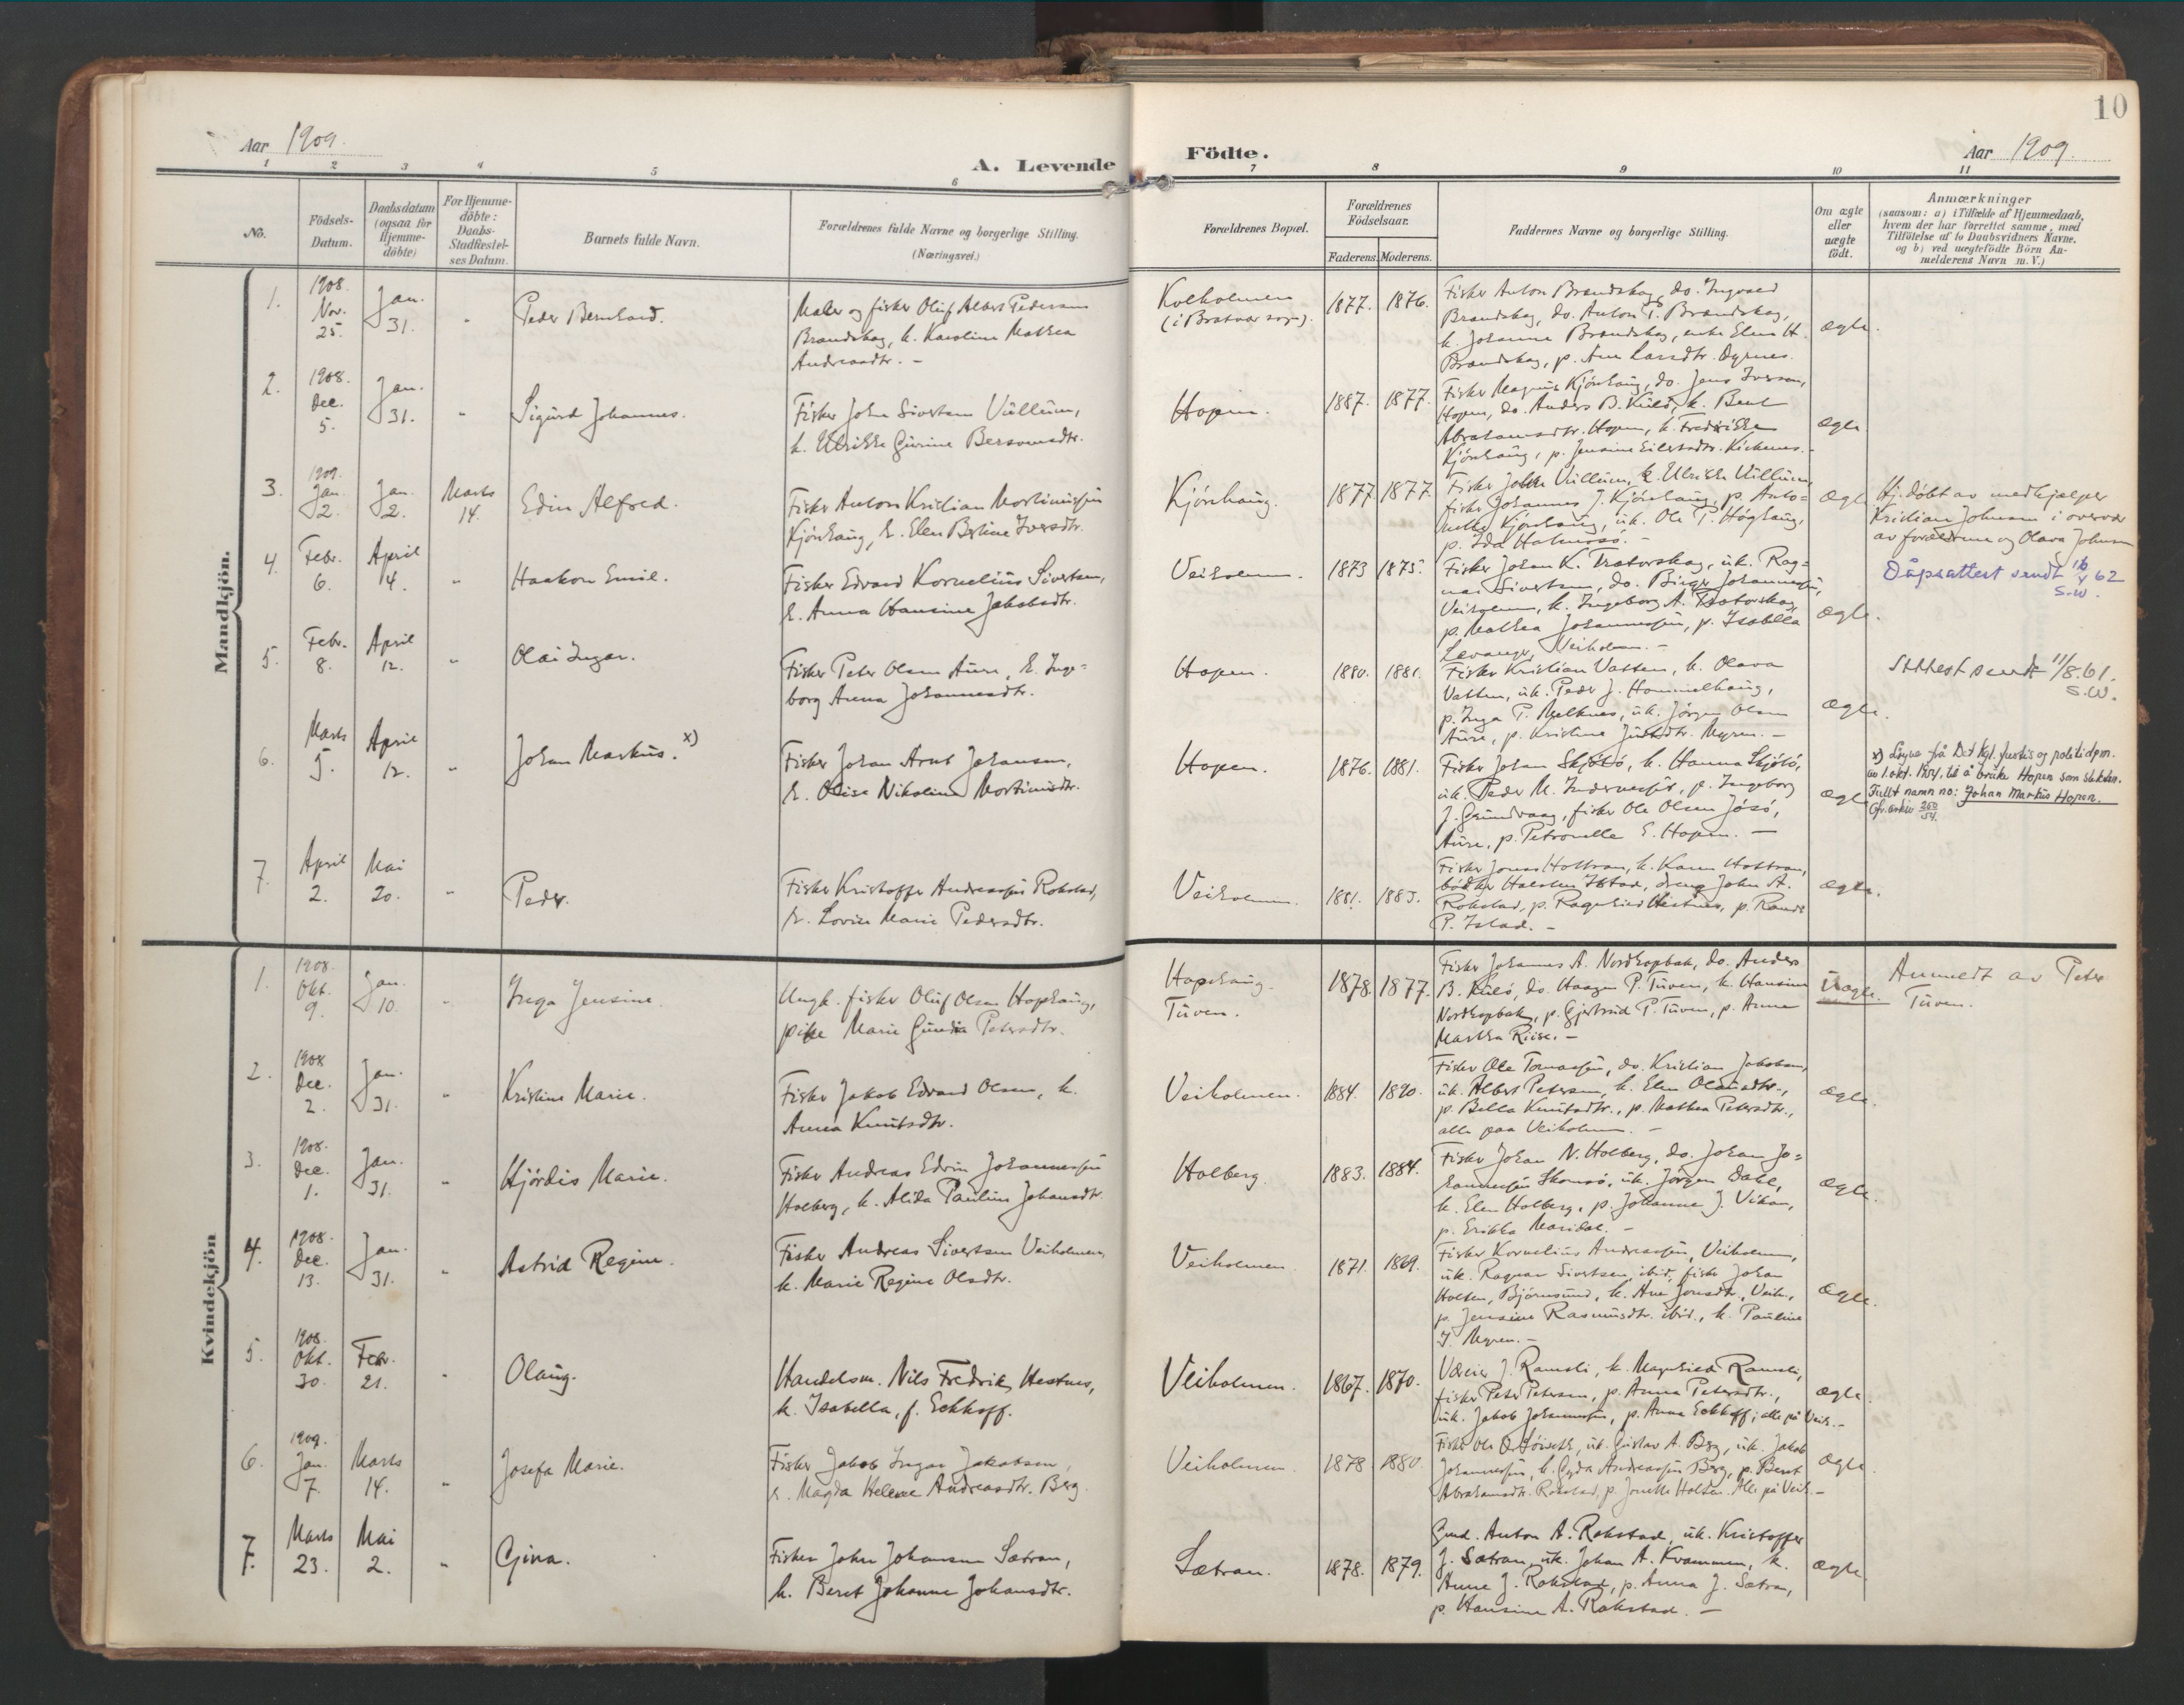 10
Aar 1909.
A. Levende Födte.
Aar 1909.
1 2 3 4 5 6 7 8 9 10 11
No.
Födsels-
Datum.
Daabsdatum
(ogsaa for
Hjemme-
döbte)
For Hjemme-
döbte:
Daabs-
Stadfæstel-
ses Datum.
Barnets fulde Navn.
Forældrenes fulde Navne og borgerlige Stilling.
(Næringsvei.)
Forældrenes Bopæl.
Forældrenes
Födselsaar.
Faderens. Moderens.
Faddernes Navne og borgerlige Stilling.
Om ægte
eller
uægte
födt.
Anmærkninger
(saasom: a) i Tilfælde af Hjemmedaab,
hvem der har forrettet samme, med
Tilföielse af to Daabsvidners Navne.
og b) ved uægtefödte Börn An-
melderens Navn m. V.)
Mandkjön.
1.
1908.
Nov.
25.
Jan.
31.
"
Peder Bernhard.
Maler og fisker Oluf Albert Pedersen
Brandskag, h. Karoline Mathea
Andreasdtr. -
Kolholmen
(i Bratvær sogn).
1877. 1876.
Fisker Anton Brandskag, do. Ingvard
Brandskag, do. Anton P. Brandskag,
k. Johanne Brandskag, enke Elen H.
Brandskag, p. Ane Larsdtr. Dyrnes.
ægte.
2.
1908.
Dec.
5.
Jan.
31.
"
Sigurd Johannes.
Fisker John Sivertsen Vullum,
h. Ulrikke Gurine Bersvensdtr.
Hopen.
1887. 1877.
Fisker Magnus Kjönhaug, do. Jens Iversen,
Hopen, do. Anders B. Kulö, k. Beret
Abrahamsdtr. Hopen, k. Fredrikke
Kjönhaug, p. Jensine Eilertsdtr.
ægte
3.
1909.
Jan.
2.
Jan.
2.
Marts
14.
Edin Alfred.
Fisker Anton Kristian Mortinussen
Kjönhaug, h. Elen Beline Iversdtr.
Kjönhaug.
1877. 1877.
Fisker John Vullum, k. Ulrikke Vullum,
fisker Johannes J. Kjönhaug, p. Anto-
nette Kjönhaug, uk. Ole P. Höghaug,
p. Ida Holmosö. -
ægte
Hj. döbt av medhjælper
Kristian Johnsen i overvær
av forældrene og Olava Johnsen
4.
Febr.
6.
April
4.
"
Haakon Emil.
Fisker Edvard Kornelius Sivertsen,
h. Anna Hansine Jakobsdtr.
Veiholmen.
1873 1875.
Fisker Johan K. Tratorskag, uk. Rag-
nar Sivertsen, do. Birger Johannesen,
Veiholmen, k. Ingeborg A. Tratorskag,
p. Mathea Johannessen, p. Isabella
Levange, Veiholmen. -
ægte.
Dåpsattest sendt 16/x 62
S.W.
5.
Febr.
8.
April
12.
"
Olai Ingar.
Fisker Peter Olsen Aure, h. Inge-
borg Anna Johannesdtr.
Hopen.
1880. 1881.
Fisker Kristian Vatten, k. Olava
Vatten, uk. Peder J. Hommelhaug,
p. Inga P. Melknes, uk. Jörgen Olsen
Aure, p. Kristine Myren. -
ægte.
Attest sendt 11/8.61.
S.W.
6.
Marts
5.
April
12.
"
Johan Markus. x)
Fisker Johan Arnt Johansen,
h. Olise Nikoline Mortinusdtr.
Hopen.
1876. 1881.
Fisker Johan Skjölö, k. Hanna Skjölö,
uk. Peder M. p. Ingeborg
J. Grundvaag, fisker Ole Olsen Jösö,
Aure, p. Petronelle E. Hopen. -
ægte
x) Löyve frå Det Kgl. justis og politidpm.
av 1. okt. 1954, til å bruke Hopen som slektsn.
Fullt namn no: Johan Markus Hopen.
Cfr. arkiv 260/54.
7.
April
2.
Mai
20.
"
Peder.
Fisker Kristoffer Andreassen Rokstad,
h. Lovise Marie Pedersdtr.
Veiholmen.
1881. 1883.
Fisker Jonas Holtran, k. Karen Holtran,
bödker Halsten Istad, dreng John A.
Rokstad, p. Ragnhild Hestnes, p. Randi
P. Istad. -
ægte.
Kvindekjön
1.
1908.
Okt.
9.
Jan.
10.
"
Inga Jensine.
Ungk. fisker Oluf Olsen Hopshaug,
pike Marie Gundia Petersdtr.
Hopshaug.
Tuven.
1878. 1877.
Fisker Johannes A. Nordhopbak, do. Anders
B. Kulö, do. Haagen P. Tuven, k. Hansine
Nordhopbak, p. Gjertrud P. Tuven, p. Anne
Martha Riise. -
Uægte.
Anmeldt av Peter
Tuven.
2.
1908
Dec.
2.
Jan.
31.
"
Kristine Marie.
Fisker Jakob Edvard Olsen, h.
Anna Knutsdtr.
Veiholmen.
1884. 1890.
Fisker Ole Tomassen, do. Kristian Jakobsen,
uk. Albert Petersen, k. Elen Olausdtr.,
p. Bella Knutsdtr., p. Mathea Petersdtr.,
alle paa Veiholmen. -
ægte.
3.
1908.
Dec.
1.
Jan.
31.
"
Hjördis Marie.
Fisker Andreas Edvin Johannessen
Holberg, h. Alida Pauline Johansdtr.
Holberg.
1883. 1884.
Fisker Johan N. Holberg, do. Johan Jo=
hannessen Skomsö, uk. Jörgen Dahl,
k. Elen Holberg, p. Johanne J. Vikan,
p. Erikka Maridal. -
ægte.
4.
1908.
Dec.
13.
Jan.
31.
"
Astrid Regine.
Fisker Andreas Sivertsen Veiholmen,
h. Marie Regine Olsdtr.
Veiholmen.
1871. 1869.
Fisker Kornelius Andreassen, Veiholmen,
uk. Ragnar Sivertsen, ibid, fisker Johan
Holten, Björnsund, k. Ane Jonsdtr., Veih.,
p. Jensine Rasmusdtr. ibid., k. Pauline
J. Myren. -
ægte.
5.
1908.
Okt.
30.
Febr.
21.
"
Olaug.
Handelsm. Nils Fredrik Hestnes,
h. Isabella, f. Eckhoff.
Veiholmen.
1867. 1870.
Væreier J. Ramsli, k. Magnhild Ramsli,
fisker Peter Petersen, p. Anna Petersdtr.,
uk. Jakob Johannessen, p. Anna Eckhoff; alle på Veih. -
ægte.
6.
1909.
Jan.
7.
Marts
14.
"
Josefa Marie.
Fisker Jakob Ingar Jakobsen,
h. Magda Helene Andreasdtr. Berg.
Veiholmen.
1878. 1880.
Fisker Ole uk. Gustav A. Berg, uk. Jakob
Johannessen, k. Gyda Andreassen Berg, p. Beret
Abrahamsdtr. Rokstad, p. Jonette Holten. Alle på Veih. -
ægte
7.
Marts
23.
Mai
2.
"
Gina.
Fisker John Johansen Sætran,
h. Beret Johanne Johansdtr.
Sætran.
1878. 1879.
Gmd. Anton A. Rokstad, uk. Kristoffer
J. Sætran, uk. Johan A. Kvammen, k.
Anne J. Rokstad, p. Anna J. Sætran,
p. Hansine A. Rokstad. -
ægte